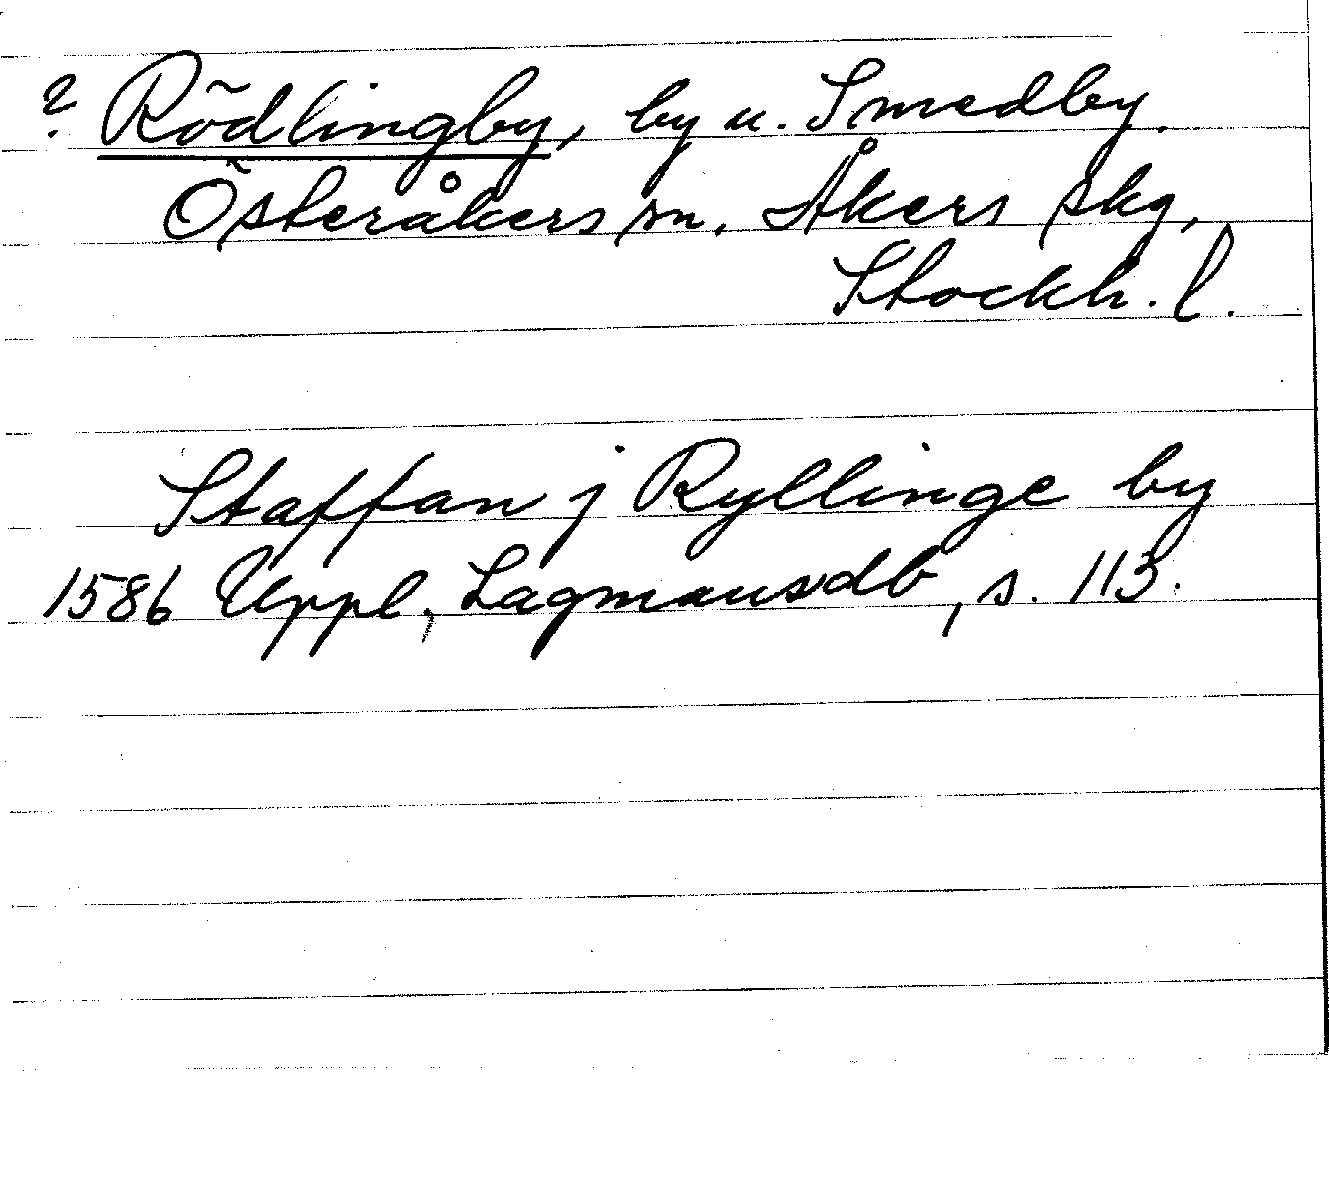 ? Rödlingby, by u. Smedby.
Österåkers sn. Åkers skg,
Stockh. l.
Staffan j Ryllinge by
1586 Uppl. Lagmansdb, s. 113.